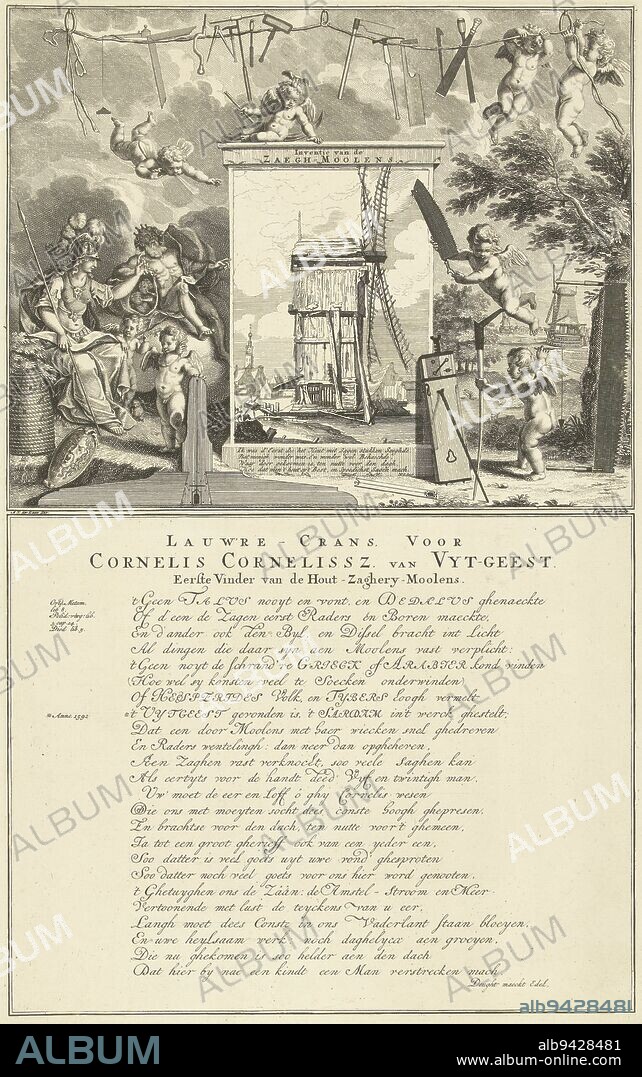 Inventie van de
ZAEGH-MOOLENS.
Ik was d'Eerst die het Hout met Zagen
LAUWRE-CRANS. VOOR
CORNELIS CORNELISSZ. VAN VYT-GEEST.
Eerste Vinder van de Hout-Zaghery-Moolens.
't Geen TALUS nooyt en vont, en DEDÆLUS ghenaeckte
Of d'een de Zagen eerst Raders en Boren maeckte,
En d'ander ook den Byl, en Dissel bracht int Licht
Al dingen die daar zyn den Moolens vast verplicht:
't Geen noyt de schrand're GRIECK of ARABIER kond vinden
Hoe wel sy konsten veel te Soecken onderwinden
Of HESPERIDES Volk, en TYBERS Loogh vermelt
* Anno. 1592
* t VYTGEEST gevonden is, 't SARDAM in't werck ghestelt;
Dat een door Moolens met haer wiecken snel ghedreven
En Raders wentelingh: dan neer dan opgheheven,
Aen Zaghen vast verknocht, soo veele Saghen kan
Als eertyts voor de handt deed Vyf en twintigh man,
Uw' moet de eer en Loff, ô ghy Cornelis wesen
Die ons met moeyten socht deesConste hoogh ghepresen,
En brachtse voor den dach, ten nutte voor't ghemeen,
Ja tot een groot gherieff ook van een yeder een,
Soo datter is veel goets uyt uwe vond' ghesproten
Soo datter noch veel goets voor ons hier word genooten,
't Ghetuyghen ons de Záán: de Amstel-Stroom en Meer-
Vertoonende met lust de teyckens van u eer,
Langh moet dees Const' in ons Vaderlant staan bloeyen,
En uwe heylsaem werk noch daghelycx aen groeyen,
Die nu ghekomen is soo helder aen den dach
Dat hier by nae een kindt een Man verstrecken mach.
Deught maeckt Edel.
ALBUM
alb9428481
alb9428481
www.album-online.com